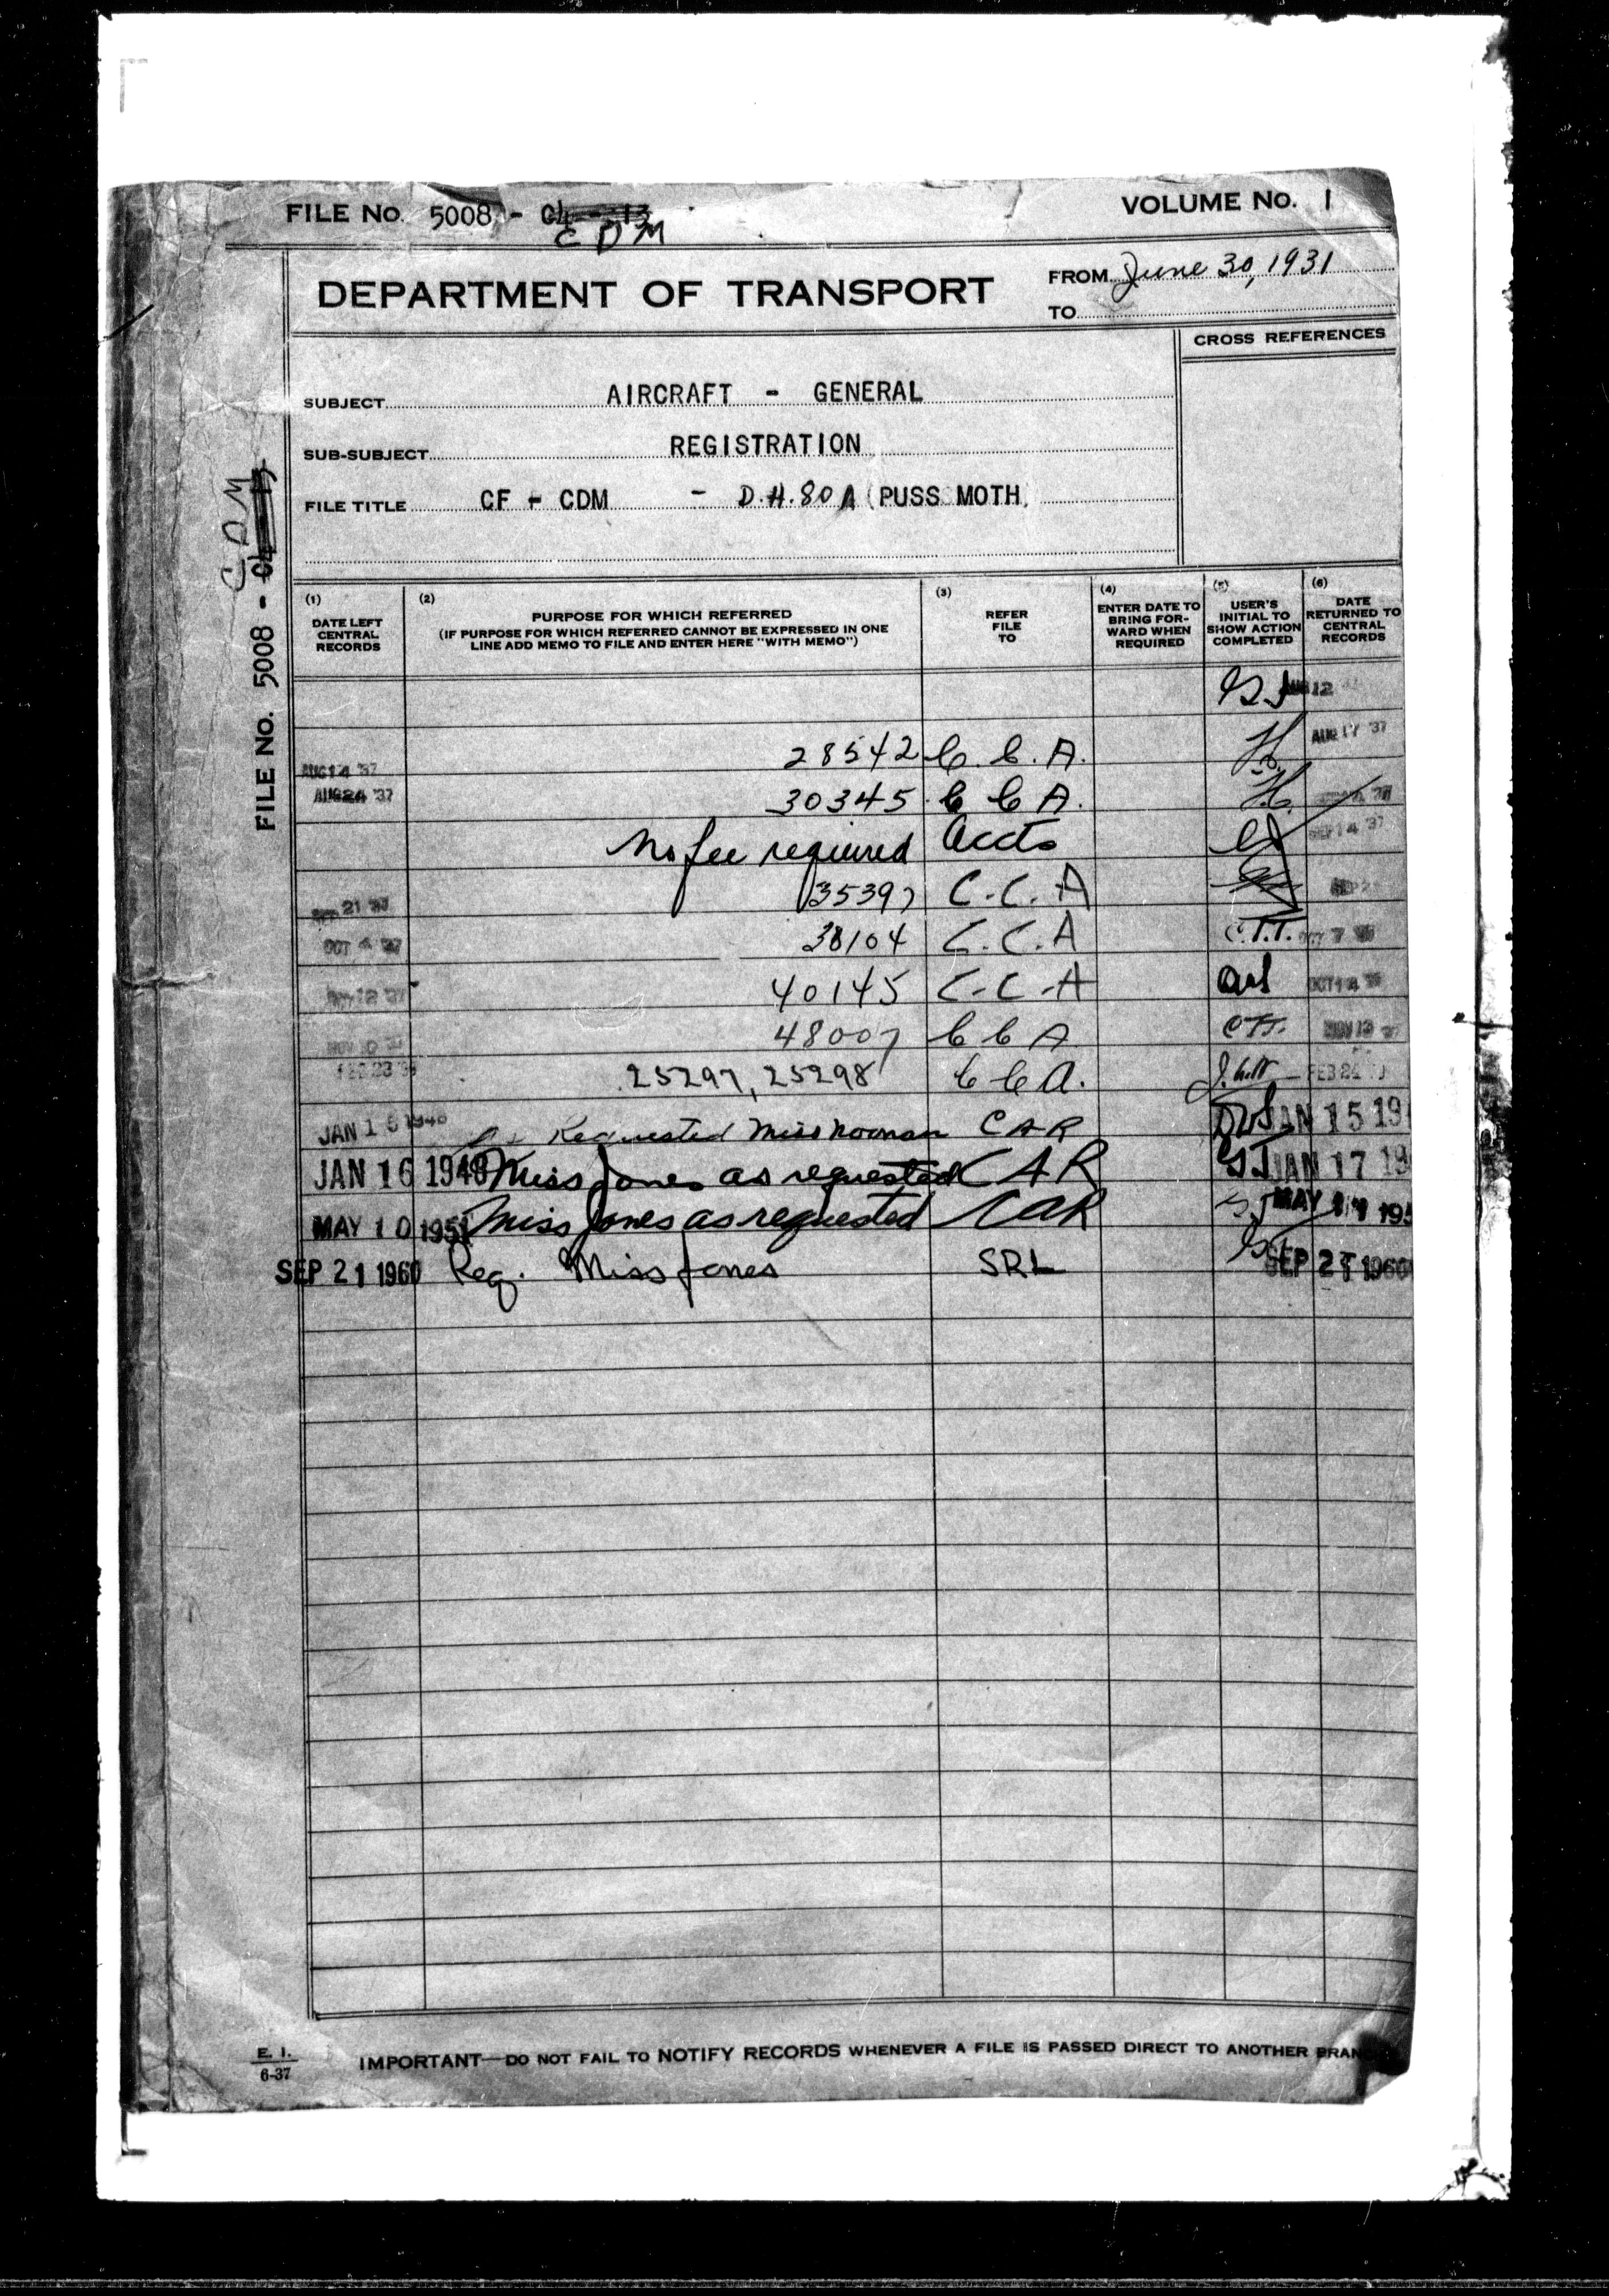 FILE No. 5008 - CDM
VOLUME No. 1
DEPARTMENT OF TRANSPORT
FROM June 30, 1931
TO
CROSS REFERENCES
SUBJECT AIRCRAFT - GENERAL
SUB-SUBJECT REGISTRATION
FILE TITLE CF - CDM - D.H.80A (PUSS MOTH)
FILE No. 5008 - CDM
(1) DATE LEFT CENTRAL RECORDS
(2) PURPOSE FOR WHICH REFERRED
(IF PURPOSE FOR WHICH REFERRED CANNOT BE EXPRESSED IN ONE
LINE ADD MEMO TO FILE AND ENTER HERE "WITH MEMO")
(3) REFER FILE TO
(4) ENTER DATE TO BRING FOR-WARD WHEN REQUIRED
(5) USER'S INITIAL TO SHOW ACTION COMPLETED
(6) DATE RETURNED TO CENTRAL RECORDS
AUG 12
AUG 14 '37 28542 C. C. A. H. AUG 17 '37
AUG 24 '37 30345 C C A. H.
No fee required Accts SEP 14 '37
SEP 21 '37 35397 C.C.A SEP 2
OCT 4 '37 38104 C.C.A C.T.T. OCT 7
12 '37 40145 C-C-A OCT 14
NOV 10 48007 C C A CTT. NOV 13 37
FEB 23 25297, 25298 C C A. FEB 24
JAN 1 1948 Requested Miss Noonan CAR JAN 15 19
JAN 16 1948 Miss Jones as requested CAR JAN 17 19
MAY 10 1951 Miss Jones as requested CAR MAY 195
SEP 21 1960 Req. Miss Jones SRL SEP 21 1960
E. 1.
6-37
IMPORTANT—DO NOT FAIL TO NOTIFY RECORDS WHENEVER A FILE IS PASSED DIRECT TO ANOTHER BRAN